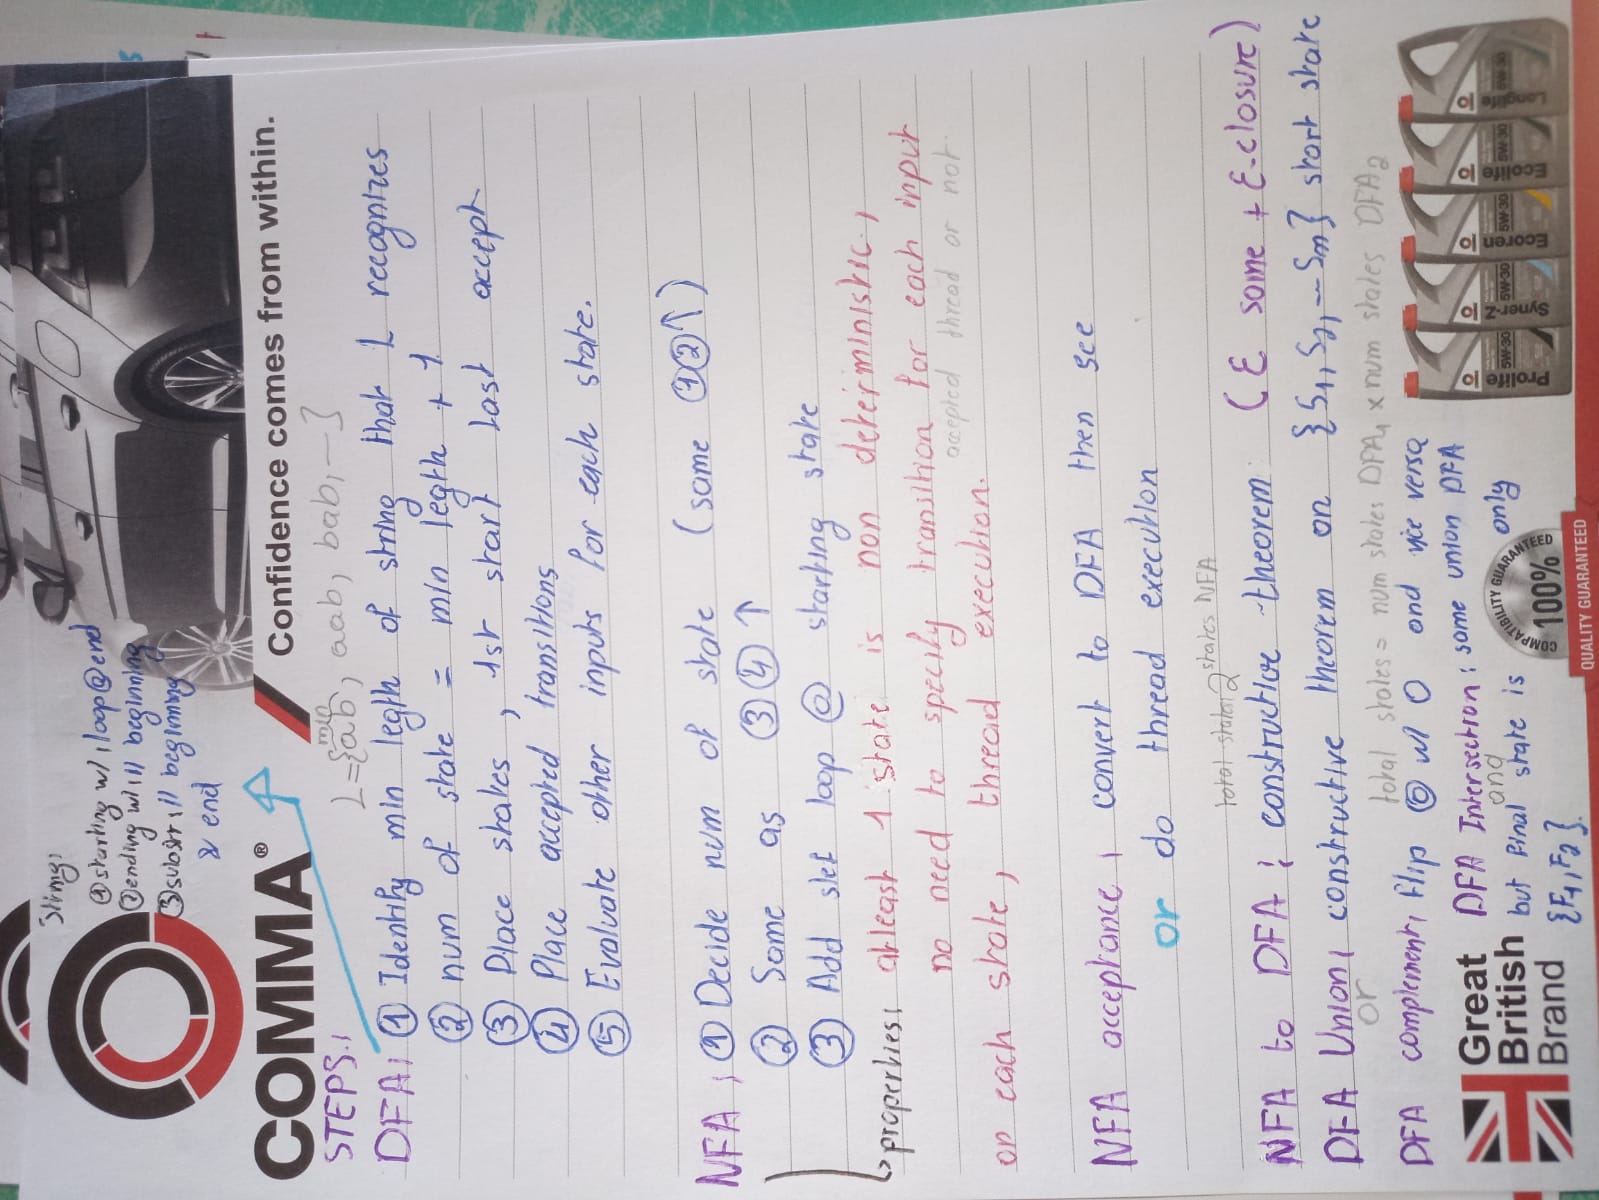 String:
① starting w/ : loop@end
② ending w/ : // beginning
③ substr : // beginning
& end
COMMA®
Confidence comes from within.
STEPS:
L={ab, aab, bab, --}
min
DFA: ① Identify min legth of string that L recognizes
② num of state = min legth + 1
③ Place states, 1st start last accept
④ Place accepted transitions
⑤ Evaluate other inputs for each state.
NFA: ① Decide num of state (same ①②↑)
② Same as ③④↑
③ Add slef loop @ starting state
↳ properties: atleast 1 state is non deterministic,
no need to specify transition for each input
on each state, thread execution.
accepted thread or not
NFA acceptance: convert to DFA then see
or do thread execution
total states 2 states NFA
NFA to DFA: constructive theorem: (ε same + ε-closure)
DFA Union: constructive theorem on {S1, S2, -- Sm} start state
or total states = num states DFA1 x num states DFA2
DFA complement: flip ◎ w/ O and vice versa
DFA Intersection: same union DFA
and
but final state is only
{F1, F2}.
Great
British
Brand
COMPATIBILITY GUARANTEED
100%
COMMA
QUALITY GUARANTEED
Prolife
5W-30
Syner-Z
5W-30
Ecoren
5W-30
Ecolife
5W-30
Longlife
5W-30